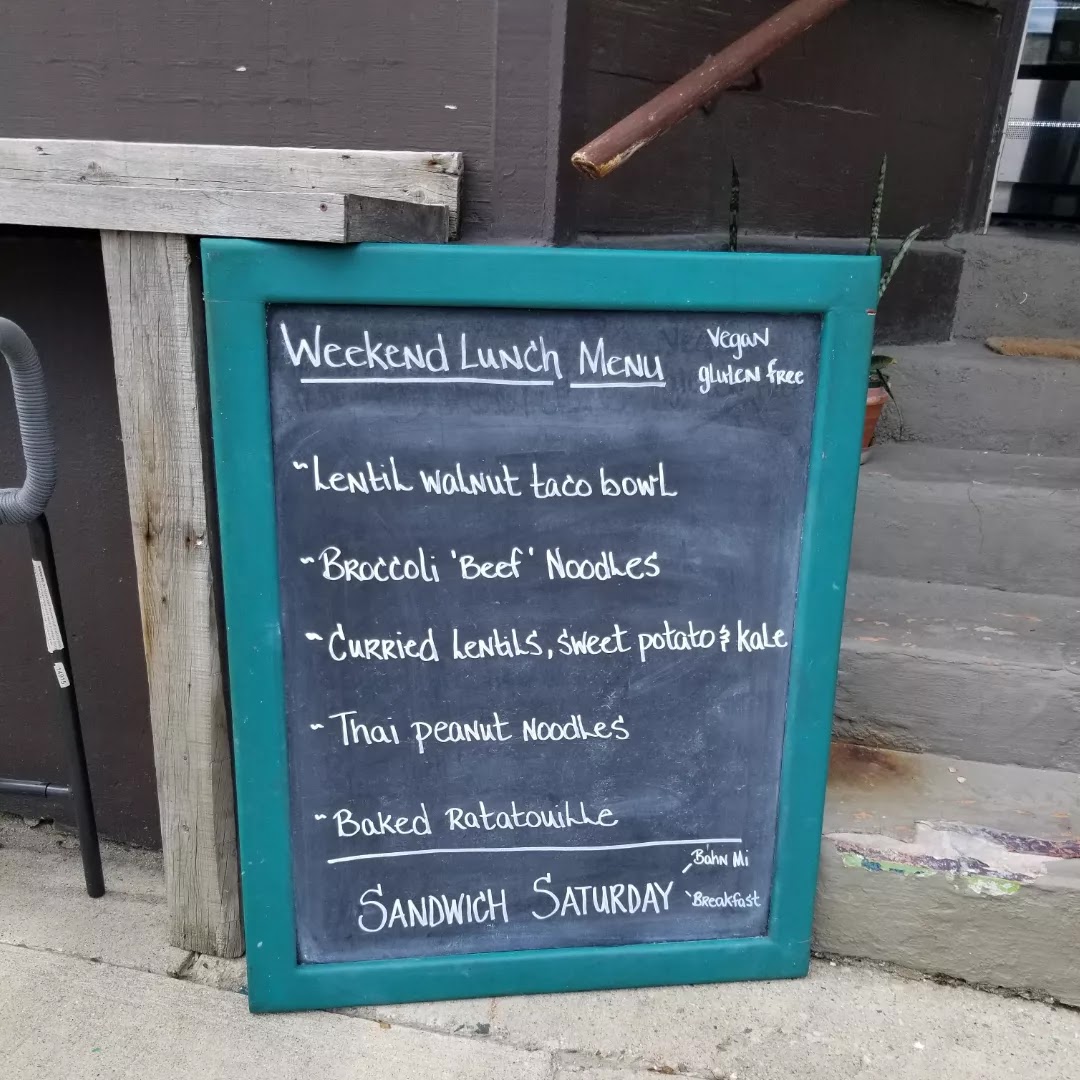 Weekend Lunch Menu
Vegan
gluten free
~Lentil walnut taco bowl
~Broccoli 'Beef' Noodles
~Curried Lentils, sweet potato & kale
~Thai peanut noodles
~Baked Ratatouille
Sandwich Saturday
Báhn Mi
Breakfast